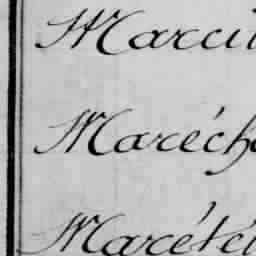 Marcil
Maréch
Marété